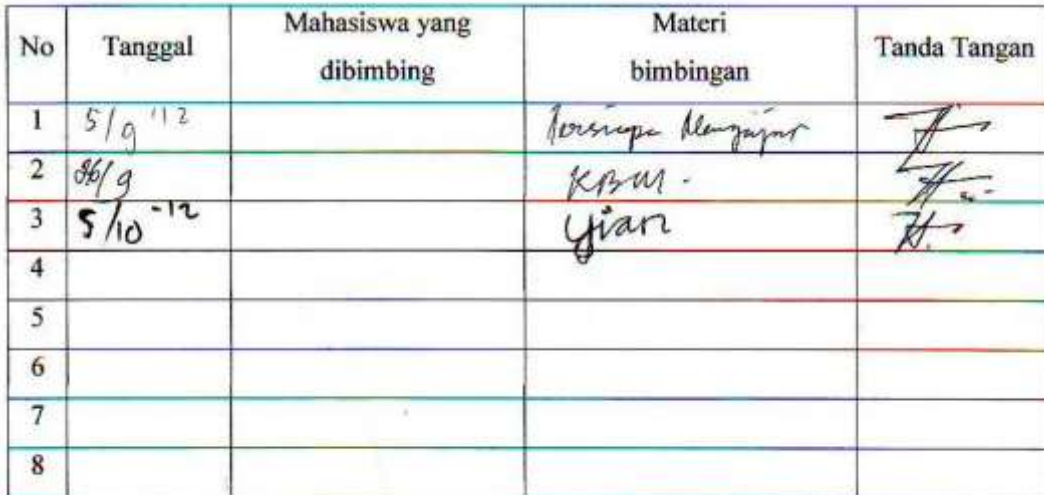 No Tanggal Mahasiswa yang dibimbing Materi bimbingan Tanda Tangan
1 5/9 '12 Persiapan Mengajar
2 26/9 KBM.
3 5/10 -12 Ujian
4
5
6
7
8